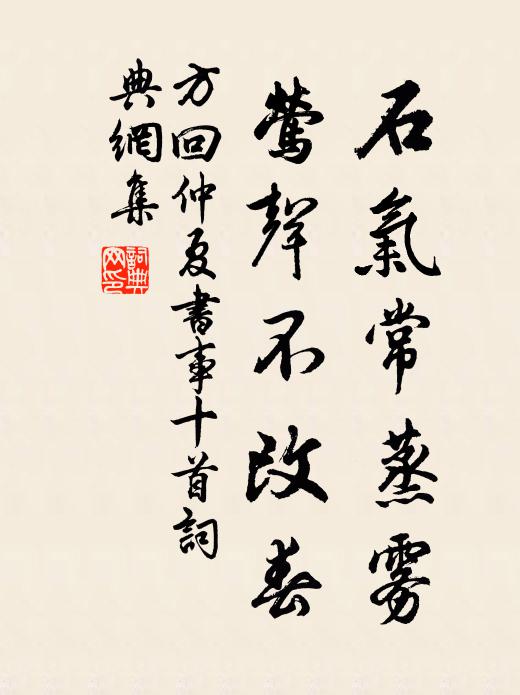 石氣常蒸雾
莺聲不改春
方回仲夏書事十首詞
典網集
詞典
网印